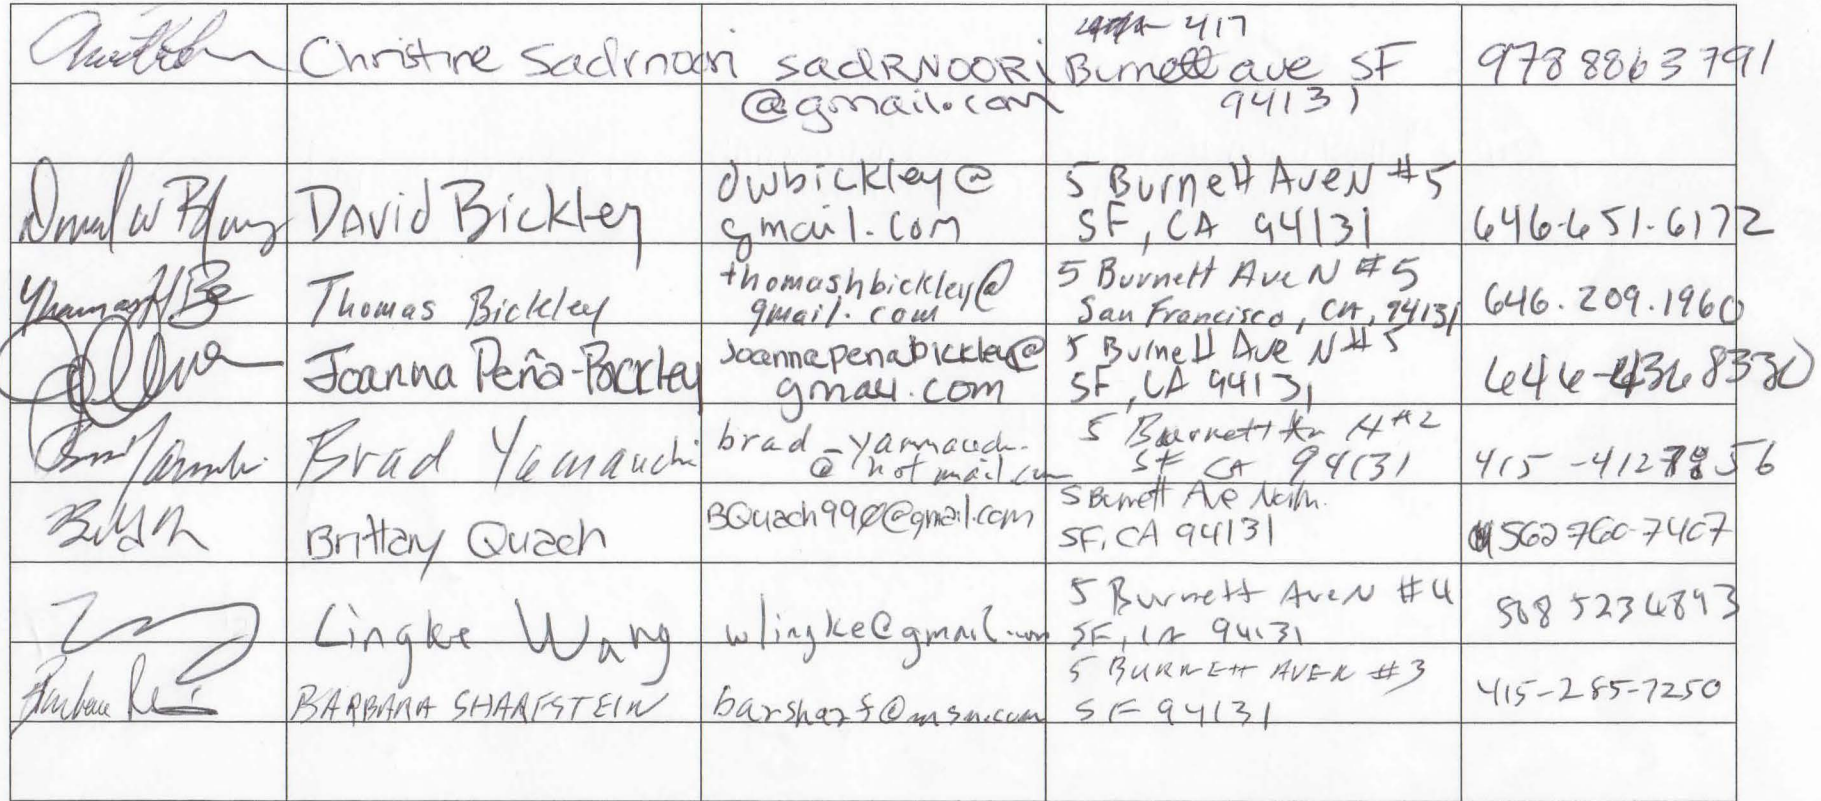 417
Christine Sadrnoori sadRNOORi Burnett ave SF 9788863791
@gmail.com 94131
David Bickley dwbickley@ 5 Burnett Ave N #5
gmail.com SF, CA 94131 646-651-6172
Thomas Bickley thomashbickley@ 5 Burnett Ave N #5
gmail.com San Francisco, CA, 94131 646.209.1960
Joanna Peña-Bickley joannapenabickley@ 5 Burnett Ave N #5
gmail.com SF, CA 94131 646-436 8330
Brad Yamauchi brad_yamauchi 5 Burnett Av N #2
@hotmail.com SF CA 94131 415-412 7856
Brittany Quach BQuach990@gmail.com 5 Burnett Ave North.
SF, CA 94131 562 760-7407
Lingke Wang wlingke@gmail.com 5 Burnett Ave N #4
SF, CA 94131 508 5234893
BARBARA SHARFSTEIN barsharf@msn.com 5 BURNETT AVE N #3
SF 94131 415-285-7250